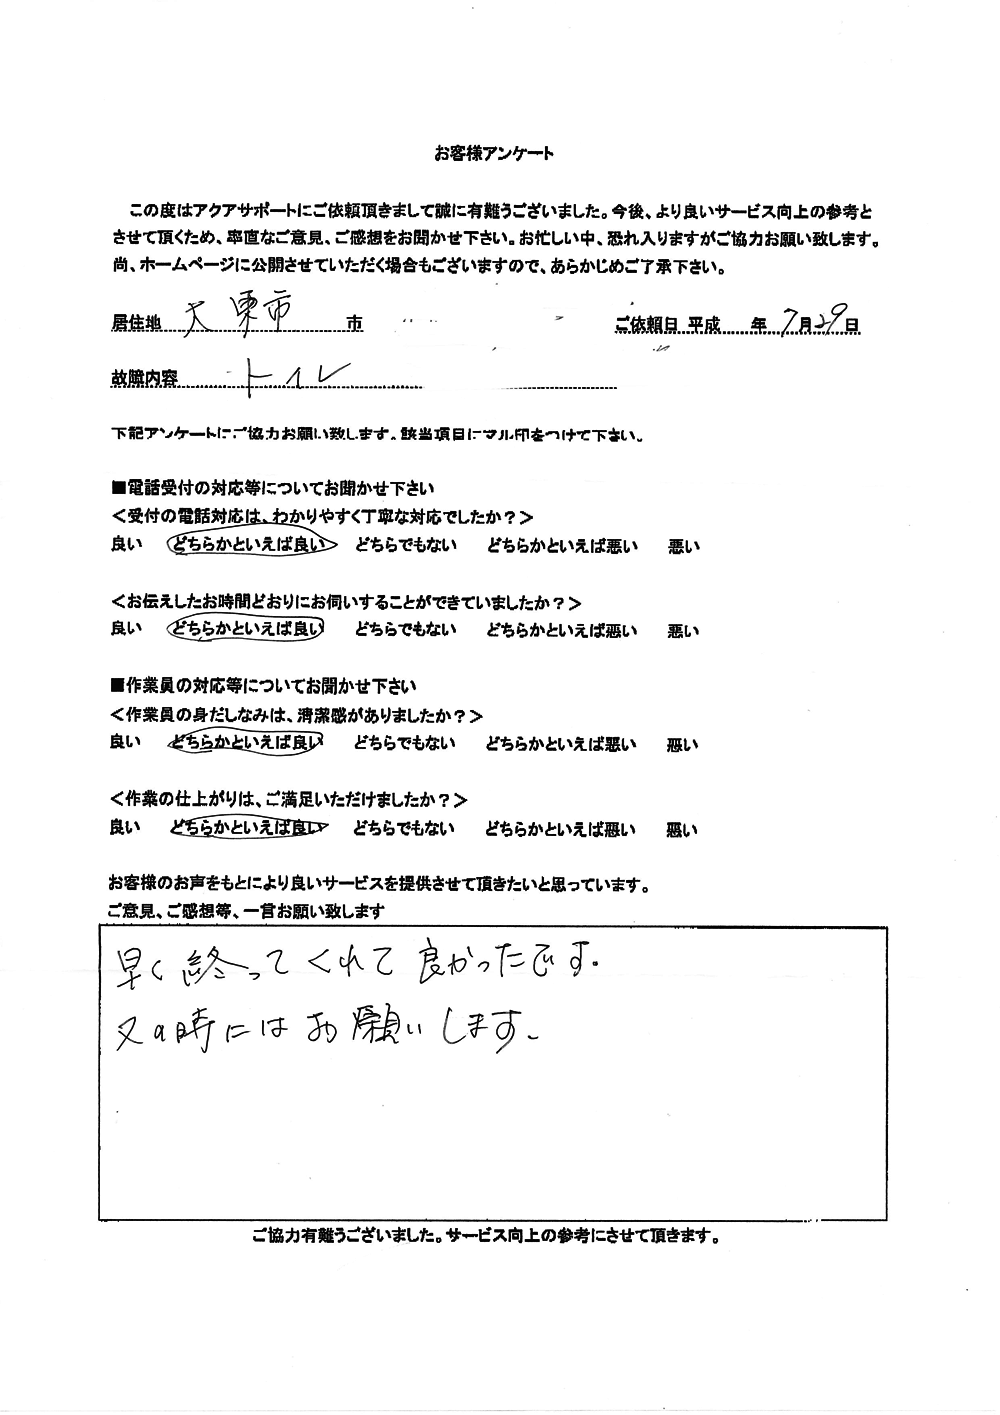 お客様アンケート
この度はアクアサポートにご依頼頂きまして誠に有難うございました。今後、より良いサービス向上の参考と
させて頂くため、率直なご意見、ご感想をお聞かせ下さい。お忙しい中、恐れ入りますがご協力お願い致します。
尚、ホームページに公開させていただく場合もございますので、あらかじめご了承下さい。
居住地 大東市 市 ご依頼日 平成 年 7月29日
故障内容 トイレ
下記アンケートにご協力お願い致します。該当項目にマル印をつけて下さい。
■電話受付の対応等についてお聞かせ下さい
<受付の電話対応は、わかりやすく丁寧な対応でしたか?>
良い どちらかといえば良い どちらでもない どちらかといえば悪い 悪い
<お伝えしたお時間どおりにお伺いすることができていましたか?>
良い どちらかといえば良い どちらでもない どちらかといえば悪い 悪い
■作業員の対応等についてお聞かせ下さい
<作業員の身だしなみは、清潔感がありましたか?>
良い どちらかといえば良い どちらでもない どちらかといえば悪い 悪い
<作業の仕上がりは、ご満足いただけましたか?>
良い どちらかといえば良い どちらでもない どちらかといえば悪い 悪い
お客様のお声をもとにより良いサービスを提供させて頂きたいと思っています。
ご意見、ご感想等、一言お願い致します
早く終ってくれて良かったです.
又の時にはお願いします.
ご協力有難うございました。サービス向上の参考にさせて頂きます。